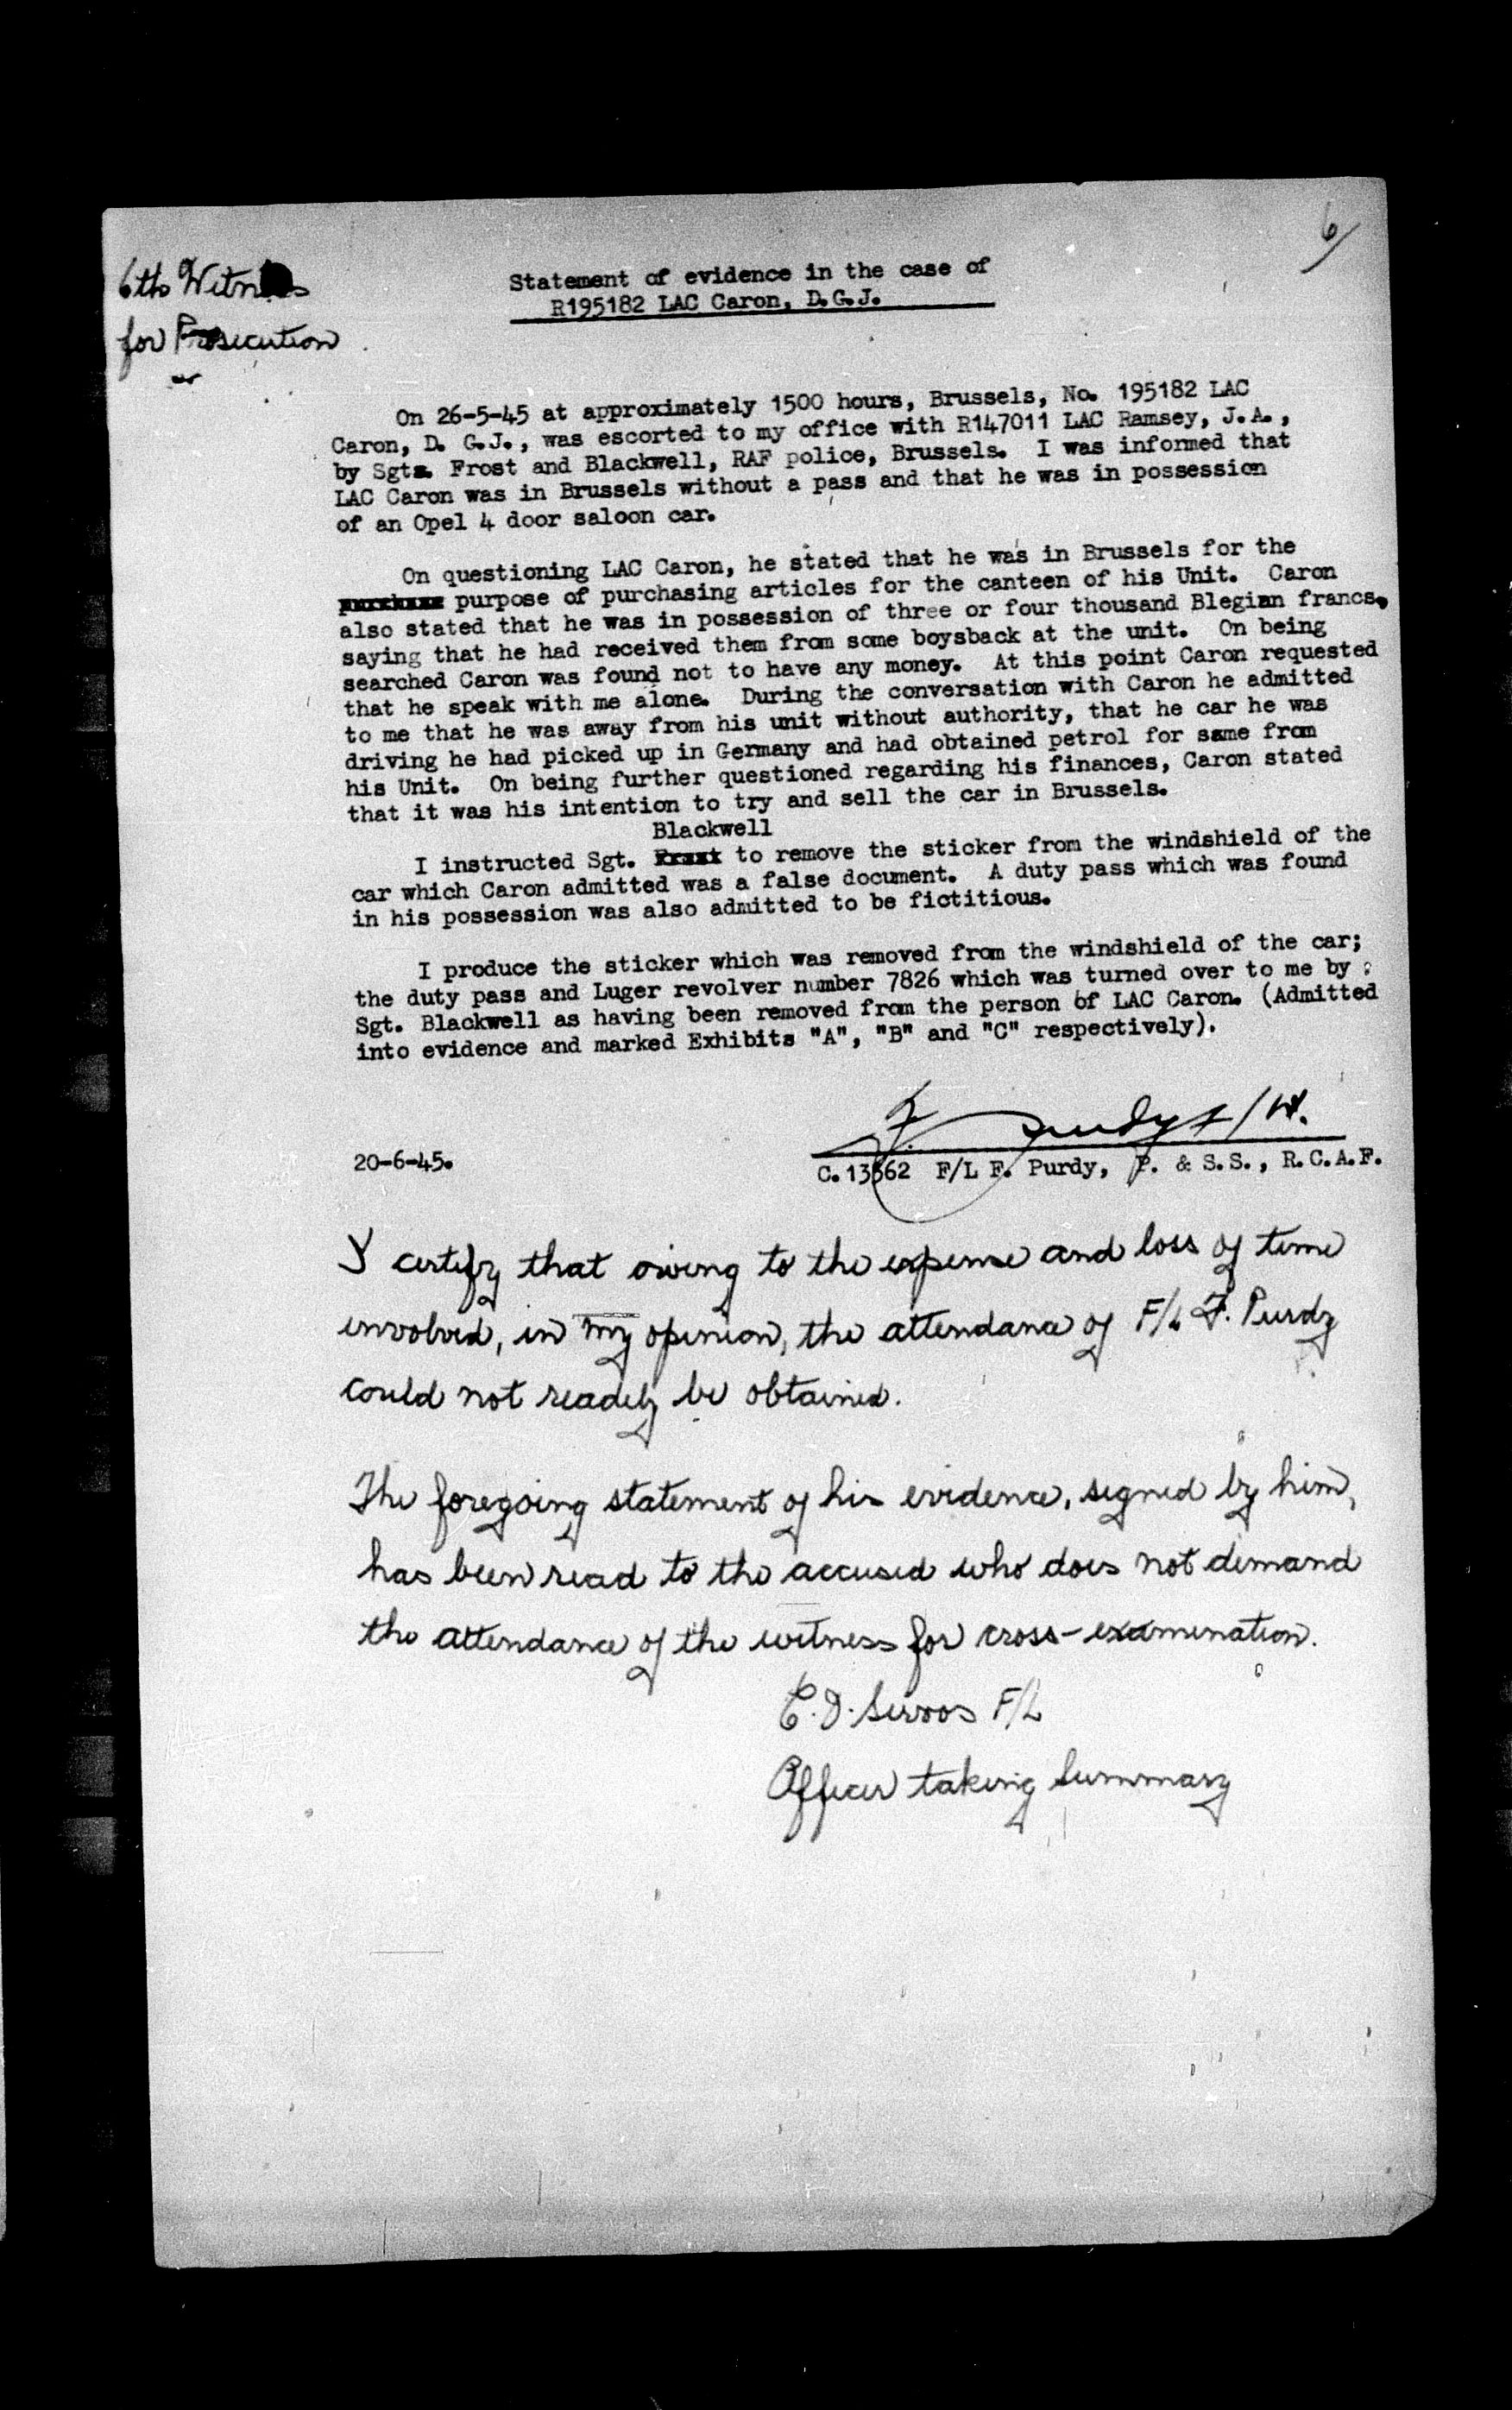 6/
6th Witness
for Prosecution
Statement of evidence in the case of
R195182 LAC Caron, D.G.J.
On 26-5-45 at approximately 1500 hours, Brussels, No. 195182 LAC
Caron, D. G.J., was escorted to my office with R147011 LAC Ramsey, J.A.,
by Sgts. Frost and Blackwell, RAF police, Brussels. I was informed that
LAC Caron was in Brussels without a pass and that he was in possession
of an Opel 4 door saloon car.
On questioning LAC Caron, he stated that he was in Brussels for the
purpose of purchasing articles for the canteen of his Unit. Caron
also stated that he was in possession of three or four thousand Blegian francs,
saying that he had received them from some boysback at the unit. On being
searched Caron was found not to have any money. At this point Caron requested
that he speak with me alone. During the conversation with Caron he admitted
to me that he was away from his unit without authority, that he car he was
driving he had picked up in Germany and had obtained petrol for same from
his Unit. On being further questioned regarding his finances, Caron stated
that it was his intention to try and sell the car in Brussels.
Blackwell
I instructed Sgt. Frost to remove the sticker from the windshield of the
car which Caron admitted was a false document. A duty pass which was found
in his possession was also admitted to be fictitious.
I produce the sticker which was removed from the windshield of the car;
the duty pass and Luger revolver number 7826 which was turned over to me by
Sgt. Blackwell as having been removed from the person of LAC Caron. (Admitted
into evidence and marked Exhibits "A", "B" and "C" respectively).
F. Purdy F/Lt.
20-6-45.
C.13562 F/L F. Purdy, P. & S.S., R.C.A.F.
I certify that owing to the expense and loss of time
involved, in my opinion, the attendance of F/L F. Purdy
could not readily be obtained.
The foregoing statement of his evidence, signed by him,
has been read to the accused who does not demand
the attendance of the witness for cross-examination.
C.D. Servos F/L
Officer taking Summary